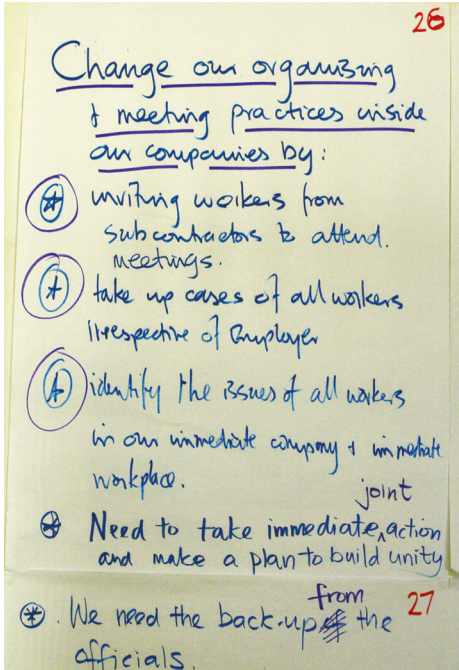 26
Change our organising
+ meeting practices inside
our companies by:
inviting workers from
subcontractors to attend.
meetings.
take up cases of all workers
irrespective of Employer
identify the issues of all workers
in our immediate company + immediate
workplace.
joint
Need to take immediate ^ action
and make a plan to build unity
from
27
* . We need the back-up the
officials.